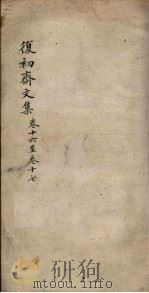 復初齋文集卷十六至卷十七